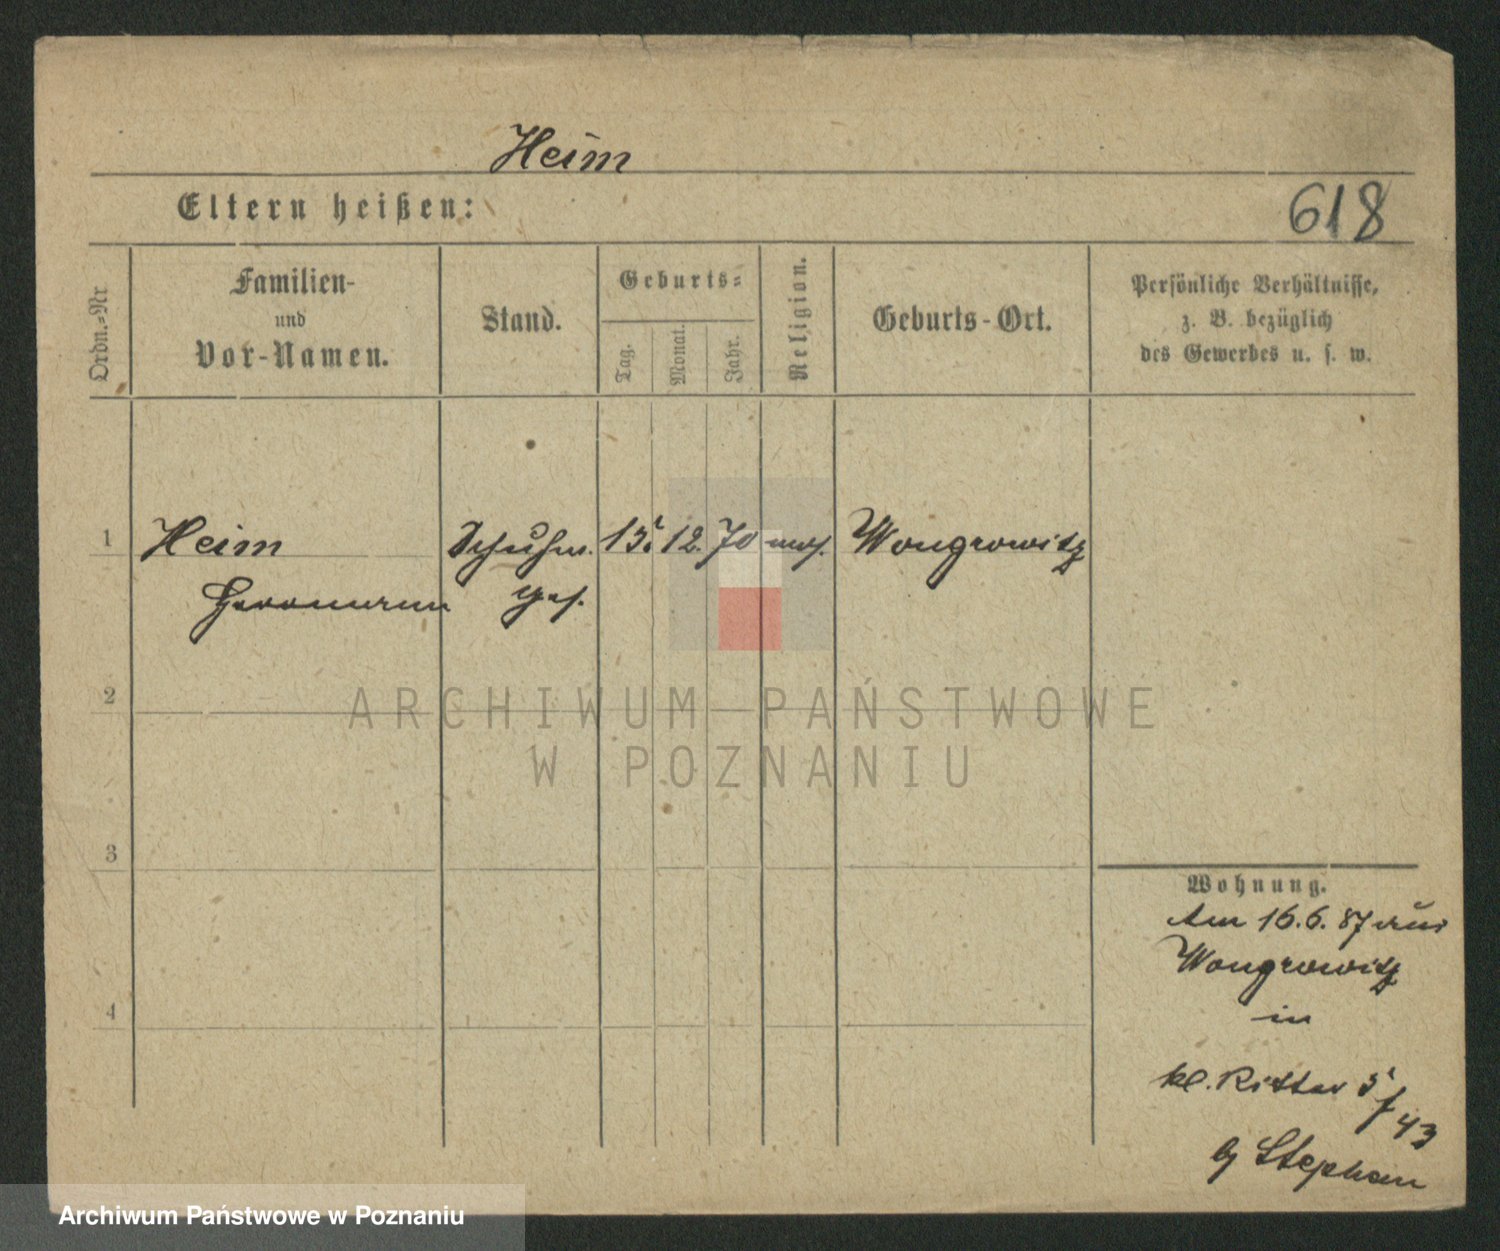 Heim
Eltern heißen:
618
Ordn.-Nr
Familien-
und
Vor-Namen.
Stand.
Geburts-
Tag.
Monat.
Jahr.
Religion.
Geburts-Ort.
Persönliche Verhältnisse,
z. B. bezüglich
des Gewerbes u. s. w.
1
Heim
Schuhm.
15.
12.
70
Wongrowitz
Herrmann
Ges.
2
3
4
Wohnung.
Am 16.6.87 aus
Wongrowitz
in
kl. Ritter 5
/43
Stephan
ARCHIWUM PAŃSTWOWE
W POZNANIU
Archiwum Państwowe w Poznaniu